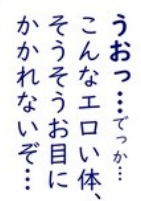 うおっ…でっか…
こんなエロい体、
そうそうお目に
かかれないぞ…